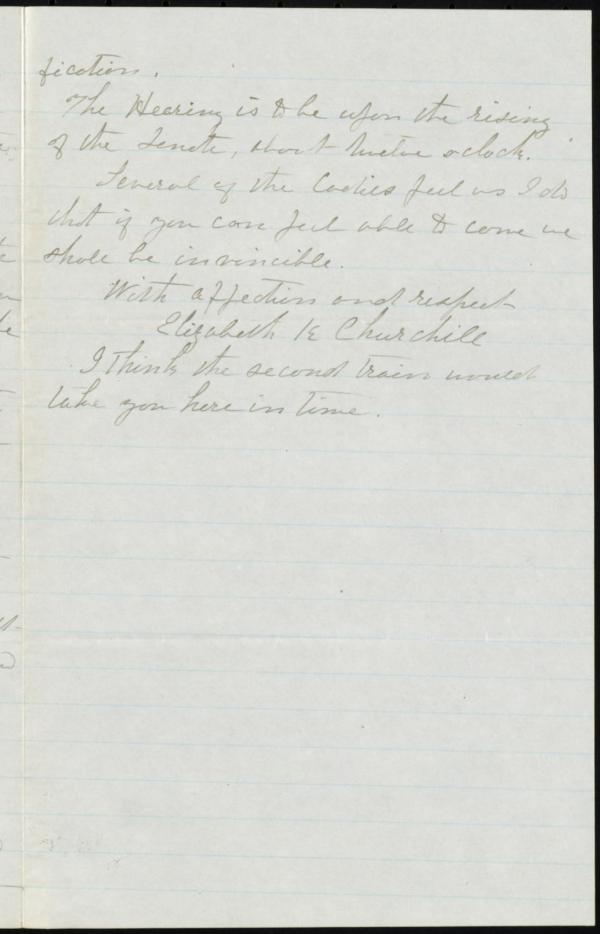 fication.
The Hearing is to be upon the rising
of the Senate, about twelve o'clock.
Several of the Ladies feel as I do
that if you can feel able to come we
shall be invincible.
With affection and respect
Elizabeth K Churchill
I think the second train would
take you here in time.